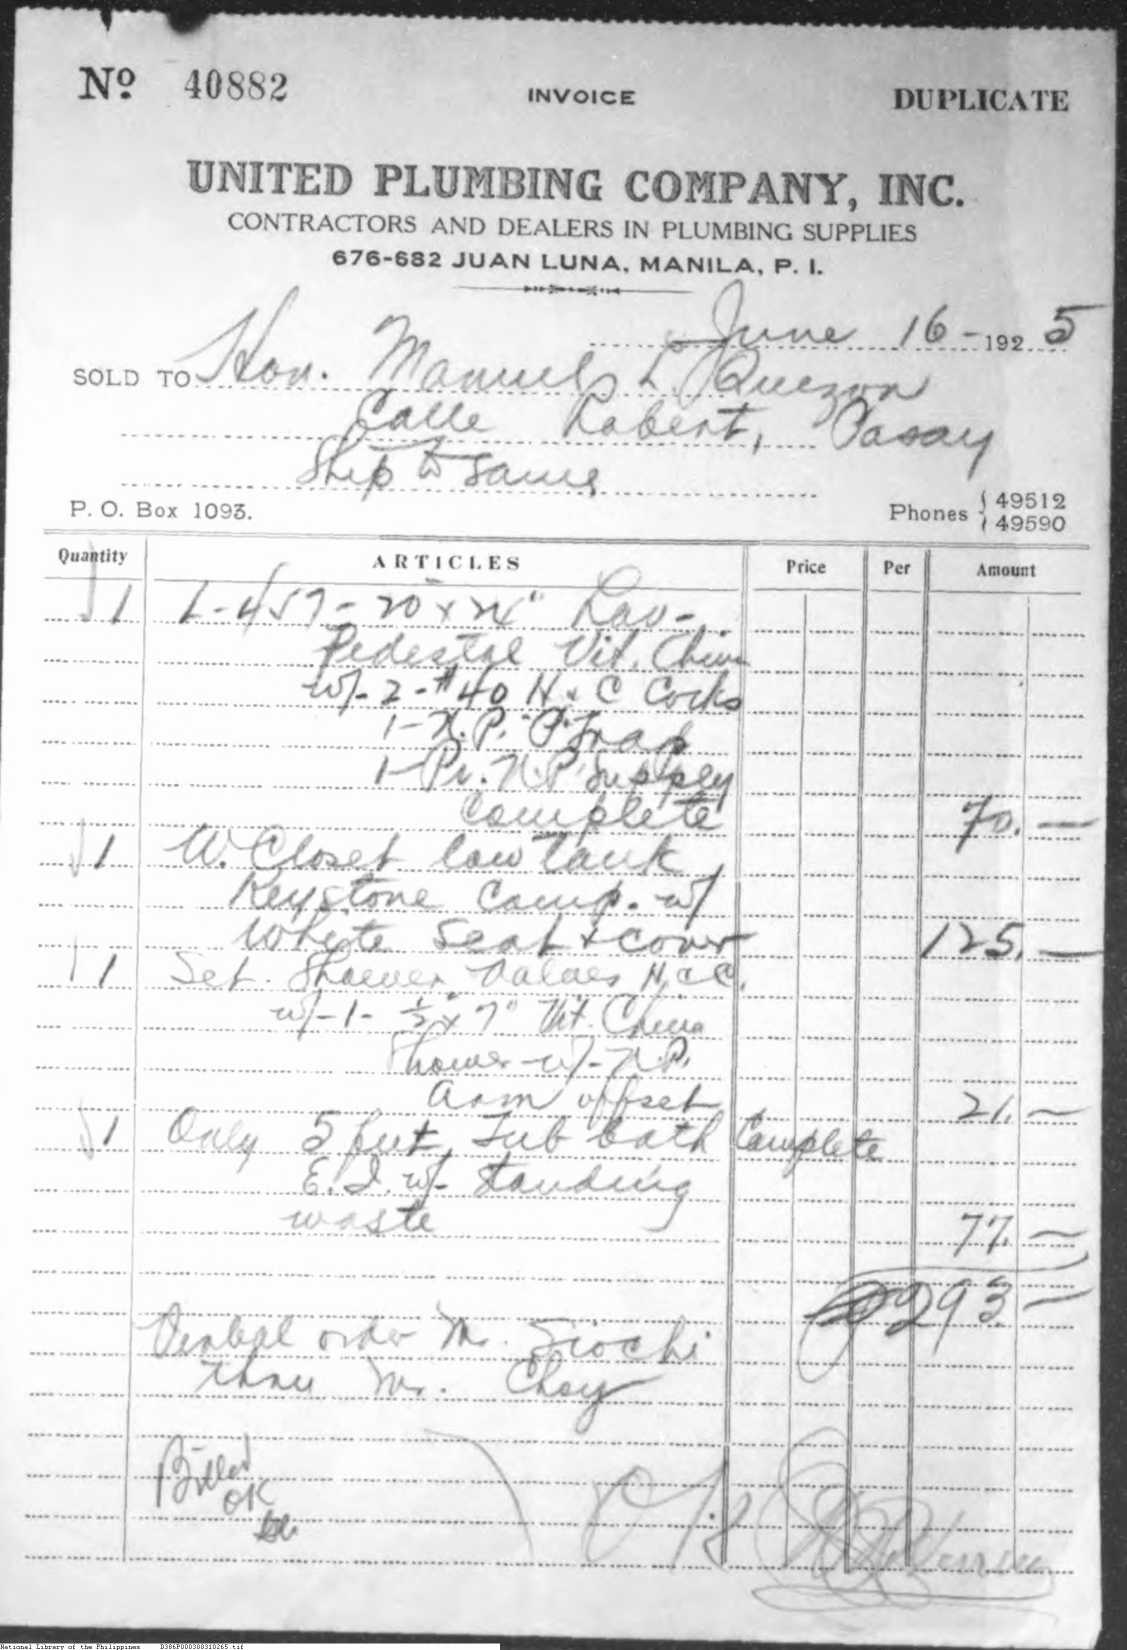 Nº 40882
INVOICE
DUPLICATE
UNITED PLUMBING COMPANY, INC.
CONTRACTORS AND DEALERS IN PLUMBING SUPPLIES
676-682 JUAN LUNA, MANILA, P. I.
June 16- 1925
SOLD TO Hon. Manuel L. Quezon
Calle Robert, Pasay
Ship to Same
P. O. Box 1093.
Phones { 49512
49590
Quantity ARTICLES Price Per Amount
1 L-457-20 x 24" Lav-
Pedestal Vit. China
w/-2-#40 H & C Cocks
1-N.P. "P" Trap
1-Pr. N.P. Supply
Complete 70.—
1 W. Closet low tank
Keystone Comp. w/
White Seat & cover 125.—
1 Set Shower Valves H & C.
w/-1- ½ x 7" Vit. China
Shower w/- N.P.
arm offset 21.—
1 Only 5 feet Tub bath Complete
E.I. w/- Standing
waste 77.—
293.—
Verbal order Mr. Siochi
thru Mr. Choy
Billed
OK
National Library of the Philippines D386P000300310265.tif